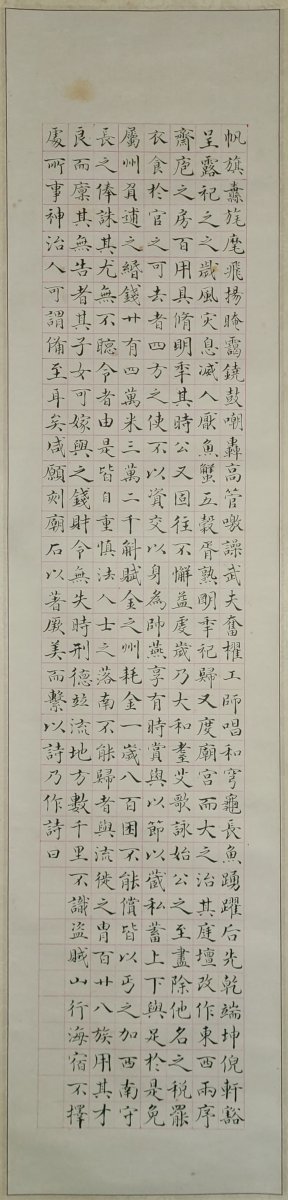 帆旗纛旄麾飛揚晻靄鐃鼓嘲轟高管噭譟武夫奮擢工師唱和穹龜長魚踴躍后先乾端坤倪軒豁
呈露祀之之歲風灾息滅人厭魚蟹五穀胥熟明年祀歸又度廟宮而大之治其庭壇改作東西兩序
齋庖之房百用具脩明年其時公又固往不懈益虔歲乃大和耋艾歌詠始公之至盡除他名之稅罷
衣食於官之可去者四方之使不以資交以身為帥燕享有時賞與以節以藏私蓄上下與足於是免
屬州負逋之緡錢廿有四萬米三萬二千斛賦金之州耗金一歲八百困不能償皆以丐之加西南守
長之俸誅其尤無不聽令者由是皆自重慎法人士之落南不能歸者與流徙之胄百廿八族用其才
良而廩其無告者其子女可嫁與之錢財令無失時刑德竝流地方數千里不識盜賊山行海宿不擇
處所事神治人可謂備至耳矣咸願刻廟石以著厥美而繫以詩乃作詩曰